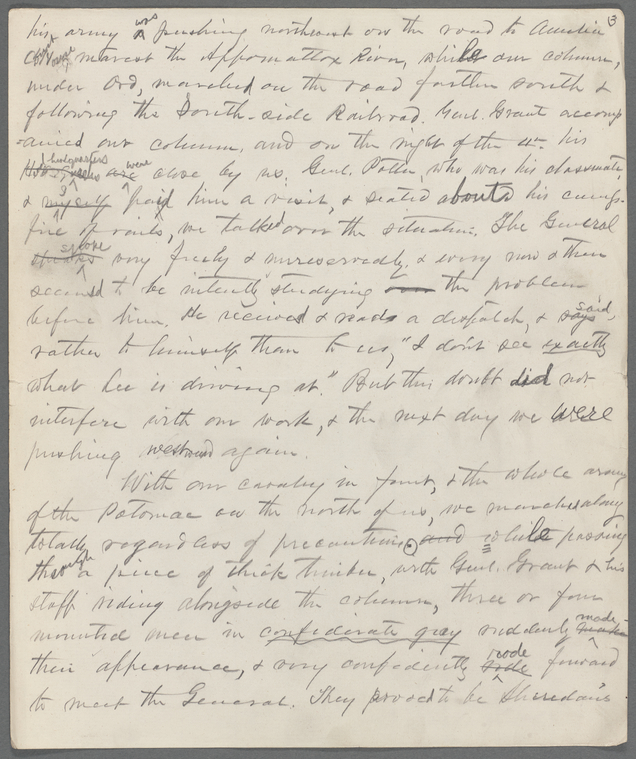 3
his army was pushing northeast on the road to Amelia
Court House nearest the Appomattox River, while our column,
under Ord, marched on the road farther south &
following the South-side Railroad. Genl. Grant accomp-
-anied our column, and on the night of the 4th his
headquarters were close by us. Genl. Potter who was his classmate,
& myself paid him a visit, & seated about his camp-
fire of rails, we talked over the situation. The General
spoke very freely & unreservedly, & every now & then
seemed to be intently studying the problem
before him. He received & read a dispatch, & said,
rather to himself than to us, "I don't see exactly
what Lee is driving at." But this doubt did not
interfere with our work, & the next day we were
pushing westward again.
With our cavalry in front, & the whole army
of the Potomac on the north of us, we marched along
totally regardless of precautions. and while passing
through a piece of thick timber, with Genl. Grant & his
staff riding alongside the column, three or four
mounted men in confederate gray suddenly made
their appearance, & very confidently rode forward
to meet the General. They proved to be Sheridan's